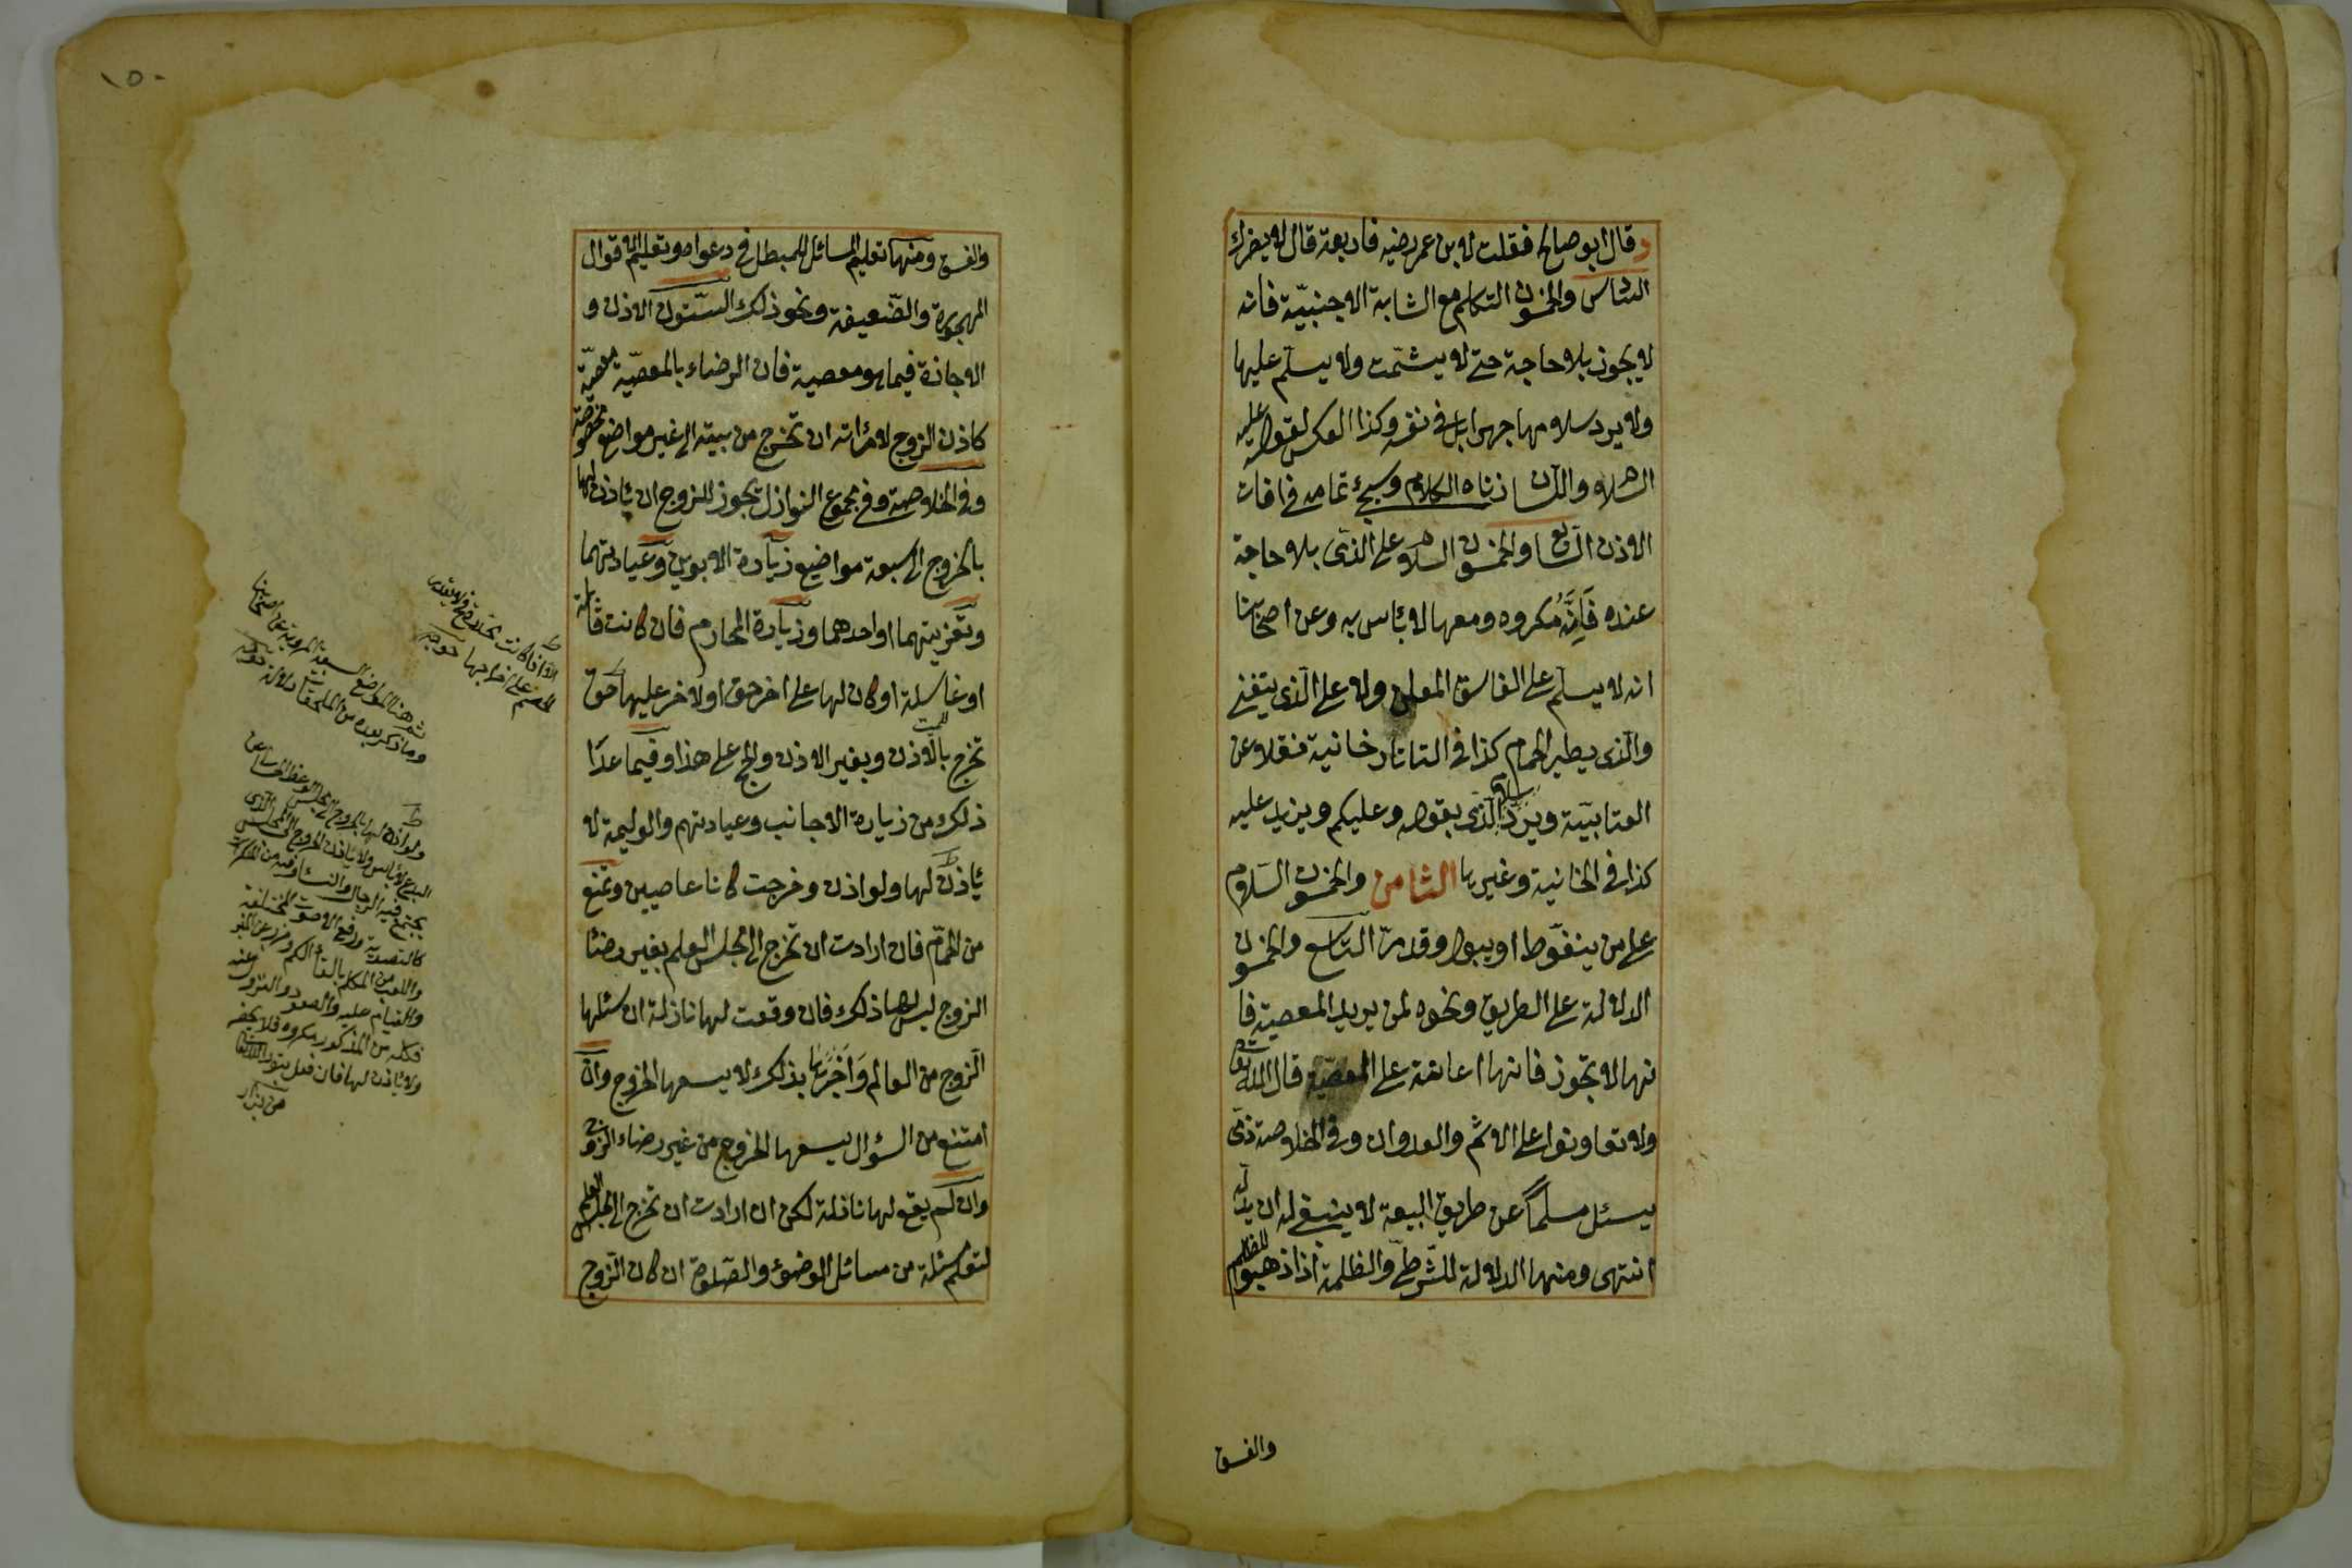 وقال ابو صالح فقلت لابن عمر رضيه فاربعة قال لا يضرك
السادس والخمسون التكلم مع الشابة الاجنبيّة فانه
لا يجوز بلا حاجة حتى لا يشمّت ولا يسلّم عليها
ولا يرد سلامها جهرا بل في نفسه وكذا العكس لقوله عليه
السلام واللسان زناه الكلام وسيجئ تمامه في افات
الاذن السابع والخمسون السلام على الذمّى بلا حاجة
عنده فَاِنَّهُ مكروه ومعها لا بأس به وعن اصحابنا
انه لا يسلّم على الفاسق المعلن ولا على الّذى يتغنى
والّذى يطير الحمام كذا فى التاتارخانية نقلا عن
العتابيّة ويردّ سلام الذمى بقوله وعليكم ويزيد عليه
كذا فى الخانية وغيرها الثامن والخمسون السّلام
على من يتغوّط او يبول وقد مرّ التاسع والخمسون
الدلالة على الطريق ونحوه لمن يريد المعصية فا
نها لا تجوز فانها اعانة على المعصية قال الله تعالى
ولا تعاونوا على الاثم والعدوان وفى الخلاصة ذمّى
يسئل مسلماً عن طريق البيعة لا ينبغى له ان يدلّه
انتهى ومنها الدلالة للشّرطىّ والظلمة اذا ذهبوا للظلم
والفسق
١٥٠
والفسق ومنها تعليم المسائل للمبطل فى دعواه وتعليم الاقوال
المهجورة والضّعيفة ونحو ذلك الستّون الاذن و
الاجازة فيما هو معصية فان الرضاء بالمعصيّة معصيّة
كاذن الزوج لامرأته ان تخرج من بيته الى غير مواضع مخصوصة
وفى الخلاصة وفى مجموع النوازل يجوز للزوج ان يأذن لها
بالخروج الى سبعة مواضيع زيارة الابوين وعيادتهما
وتعزيتهما او احدهما وزيارة المحارم فان كانت قابلة
او غاسلة او كان لها على اخر حق او لاخر عليها حق
تخرج بالاذن وبغير الاذن والحج على هذا وفيما عدا
ذلك من زيارة الاجانب وعيادتهم والوليمة لا
يأذن لها ولو اذن وخرجت كانا عاصيين وتمنع
من الحمّام فان ارادت ان تخرج الى مجلس العلم بغير رضا
الزوج ليس لها ذلك فان وقعت لها نازلة ان سئلها
الزوج من العالم وَاَخْبَرَها بذلك لا يسعها الخروج وان
امتنع من السؤال يسعها الخروج من غير رضاء الزوج
وان لم يقع لها نازلة لكن ان ارادت ان تخرج الى مجلس العلم
لتعلم مسئلة من مسائل الوضوء والصّلوة ان كان الزّوج
ولو اذن لها بالخروج الى مجلس الوعظ
يجتمع فيه الرجال والنساء وفيه من المنكرات
ورفع الاصوات المختلفة
والقيام عليه والصعود والنزول عنه
فكله من المذكور مكروه
ولا يأذن لها فان فعل يتوب الله تعالى